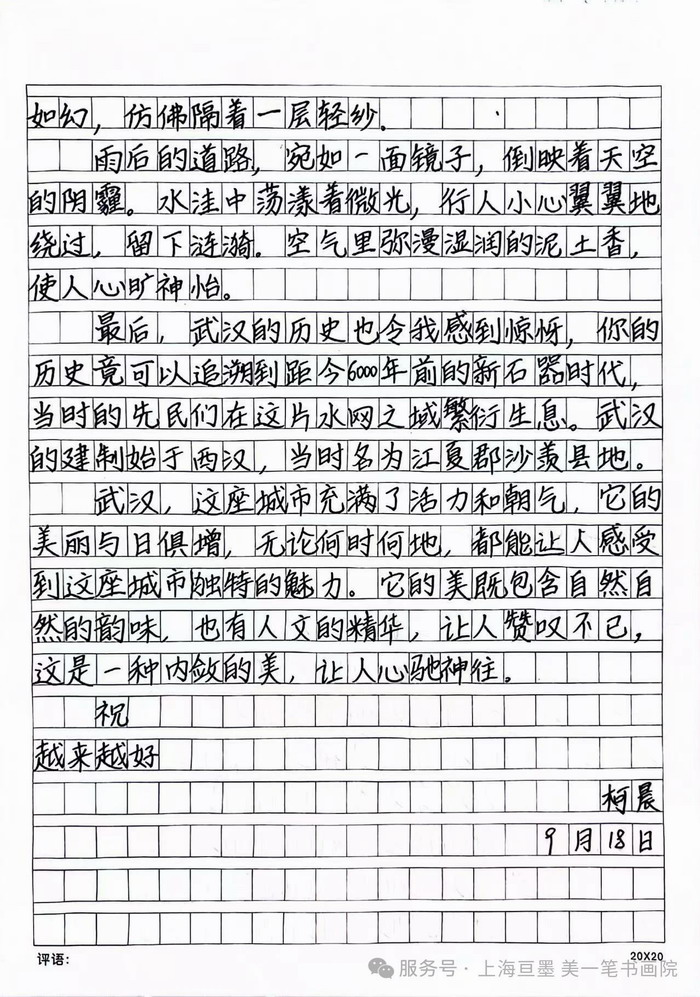 如幻，仿佛隔着一层轻纱.
雨后的道路，宛如一面镜子，倒映着天空
的阴霾。水洼中荡漾着微光，行人小心翼翼地
绕过，留下涟漪.空气里弥漫湿润的泥土香，
使人心旷神怡。
最后，武汉的历史也令我感到惊讶，你的
历史竟可以追溯到距今6000年前的新石器时代，
当时的先民们在这片水网之城繁衍生息。武汉
的建制始于西汉，当时名为江夏郡沙羡县地。
武汉，这座城市充满了活力和朝气，它的
美丽与日俱增，无论何时何地，都能让人感受
到这座城市独特的魅力。它的美既包含自然自
然的韵味，也有人文的精华，让人赞叹不已，
这是一种内敛的美，让人心驰神往。
祝
越来越好
柯晨
9月18日
评语：
20X20
服务号·上海亘墨 美一笔书画院